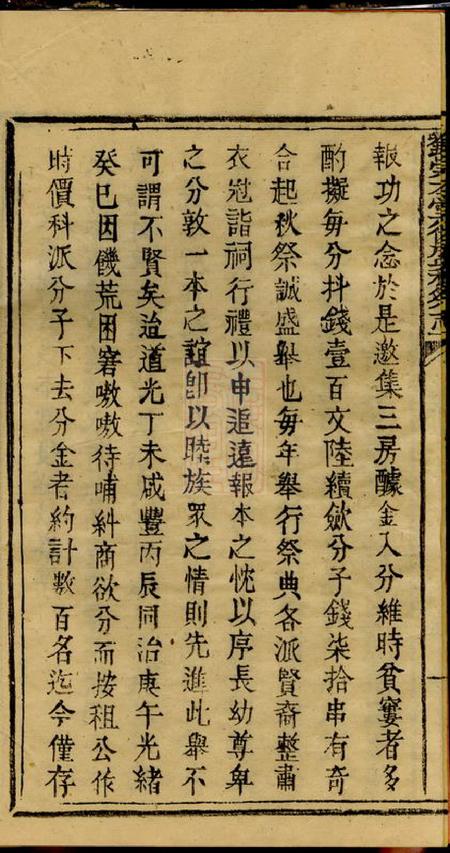 報功之念於是邀集三房醵金入分維時貧窶者多
酌擬每分抖錢壹百文陸續歛分子錢柒拾串有奇
合起秋祭誠盛舉也每年舉行祭典各派賢裔整肅
衣冠詣祠行禮以申追遠報本之忱以序長幼尊卑
之分敦一本之誼卽以睦族眾之情則先進此舉不
可謂不賢矣迨道光丁未咸豐丙辰同治庚午光緒
癸巳因饑荒困窘嗷嗷待哺糾商欲分而按租公作
時價科派分子下去分金者約計數百名迄今僅存